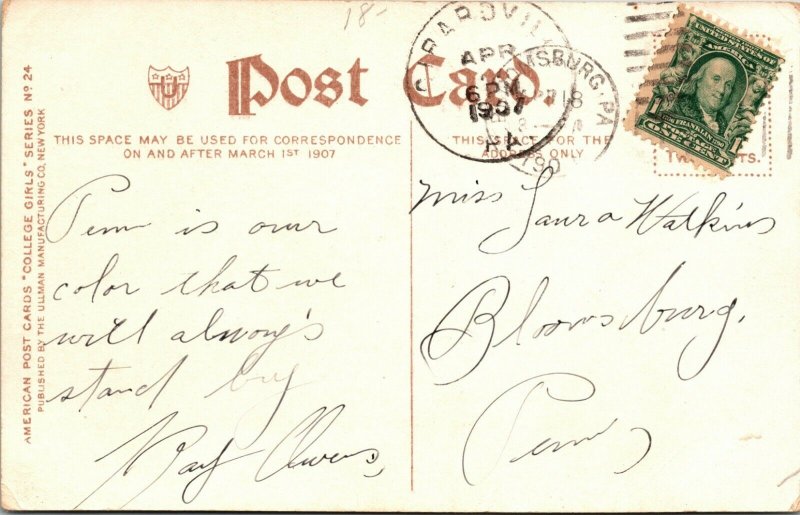 18-
Post Card.
THIS SPACE MAY BE USED FOR CORRESPONDENCE
ON AND AFTER MARCH 1ST 1907
THIS SPACE FOR THE
ADDRESS ONLY
APR
6 PM
1907
SBURG, PA
UNITED STATES OF AMERICA
FRANKLIN
ONE CENT
1
1
AMERICAN POST CARDS "COLLEGE GIRLS" SERIES Nº 24
PUBLISHED BY THE ULLMAN MANUFACTURING CO. NEW YORK
Penn is our
color that we
will always
stand by
Ray Owens,
Miss Laura Watkins
Bloomsburg,
Penn,